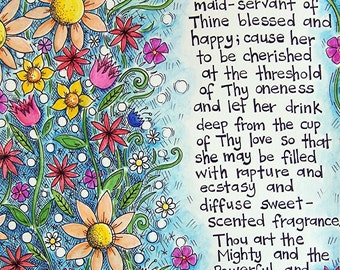 maid-servant of
Thine blessed and
happy; cause her
to be cherished
at the threshold
of Thy oneness
and let her drink
deep from the cup
of Thy love so that
she may be filled
with rapture and
ecstasy and
diffuse sweet-
scented fragrance.
Thou art the
Mighty and the
Powerful and